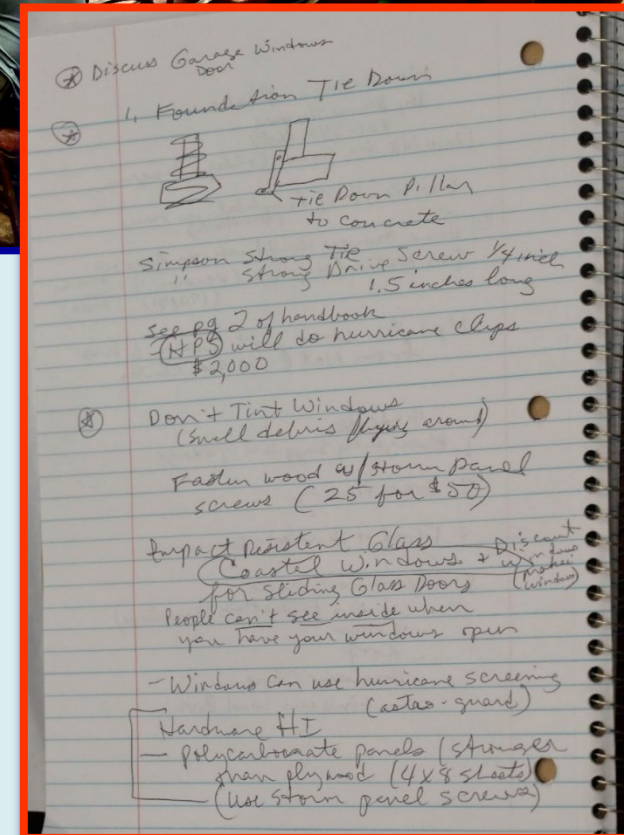 Discuss Garage Windows
Door
1. Foundation Tie Down
Tie Down Pillar
to concrete
Simpson Strong Tie Screw 1/4 inch
" Strong Drive
1.5 inches long
see pg 2 of handbook
- HPS will do hurricane clips
$2,000
Don't Tint Windows
(small debris flying around)
Fasten wood w/ storm panel
screws (25 for $50)
Impact Resistent Glass
Coastal Windows + Discount
Windows
for Sliding Glass Doors
window)
People can't see inside when
you have your windows open
- Windows can use hurricane screening
(astro-guard)
Hardware HI
- polycarbonate panels (stronger
than plywood (4x8 sheets)
(use storm panel screws)